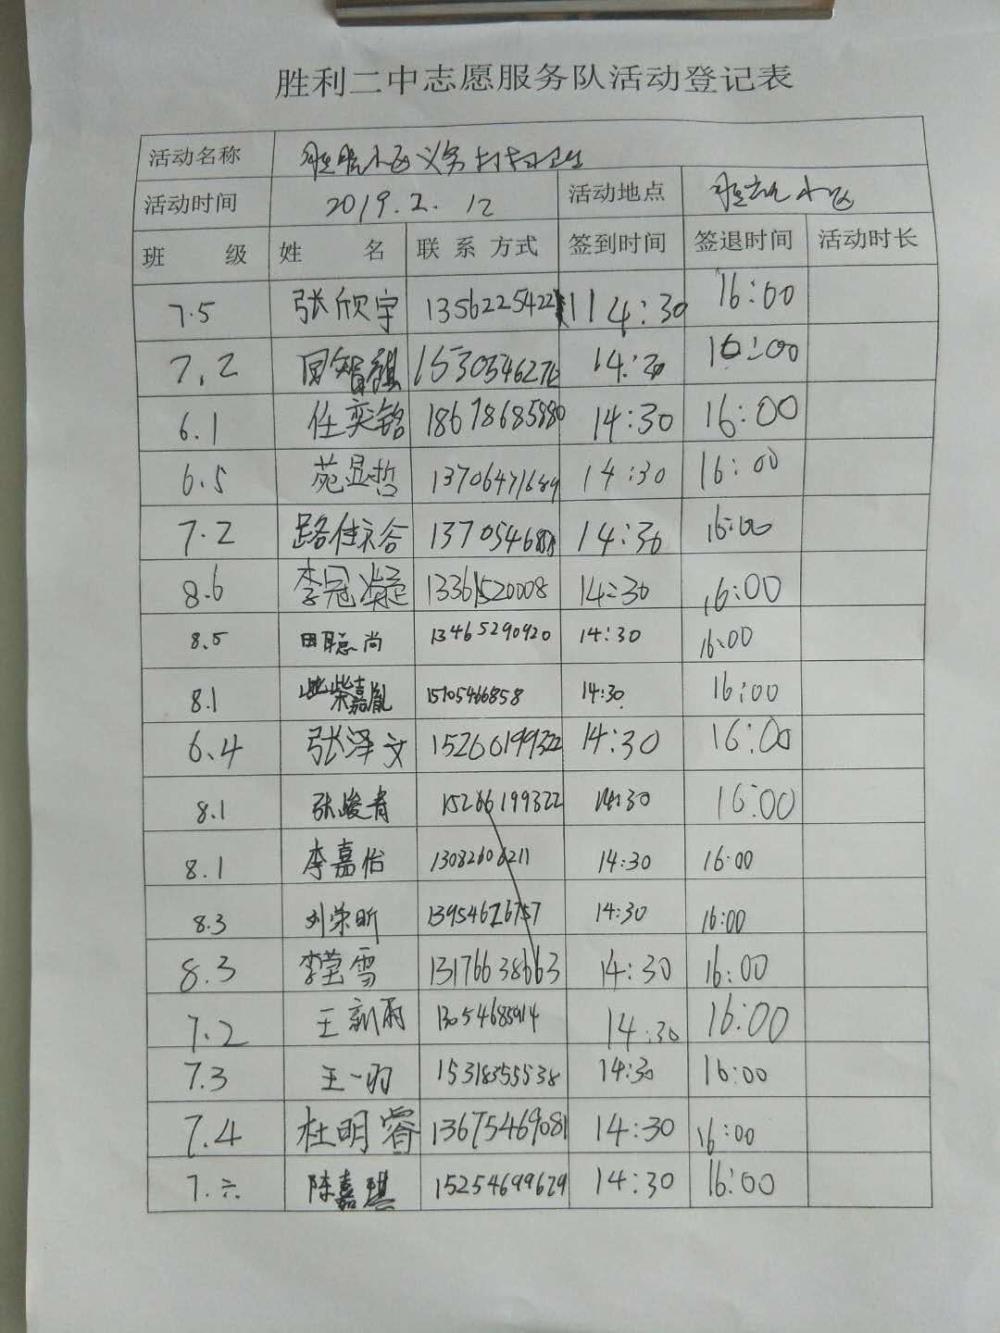 胜利二中志愿服务队活动登记表
活动名称 小区义务打扫卫生
活动时间 2019.2.12 活动地点 小区
班级 姓名 联系方式 签到时间 签退时间 活动时长
7.5 张欣宇 14:30 16:00
7.2 14:30 16:00
6.1 任奕铭 18678685880 14:30 16:00
6.5 苑显哲 14:30 16:00
7.2 14:30 16:00
8.6 李冠凝 13361520008 14:30 16:00
8.5 田聪尚 13465290920 14:30 16:00
8.1 柴嘉胤 15105466858 14:30 16:00
6.4 张泽文 15266199322 14:30 16:00
8.1 张峻青 15266199322 14:30 16:00
8.1 李嘉怡 13082606211 14:30 16:00
8.3 刘荣昕 13954626757 14:30 16:00
8.3 李莹雪 13176638663 14:30 16:00
7.2 王新雨 14:30 16:00
7.3 王一 15318355538 14:30 16:00
7.4 杜明睿 13675469081 14:30 16:00
7.六 陈嘉琪 15254699629 14:30 16:00